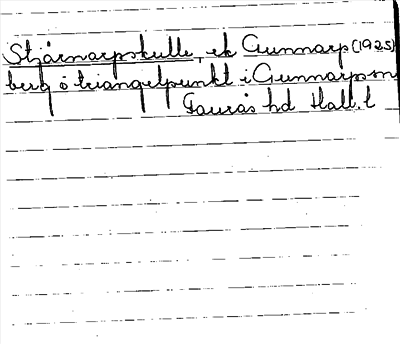 Stjärnarpskulle, ek Gunnarp (1925)
berg o triangelpunkt i Gunnarps sn
Faurås hd Hall. l